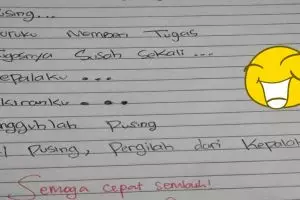 using...
uruku Memberi Tugas
ugasnya Susah Sekali...
epalaku...
ikiranku...
ngguhlah Pusing
i Pusing, Pergilah dari Kepalak
Semoga cepat sembuh!